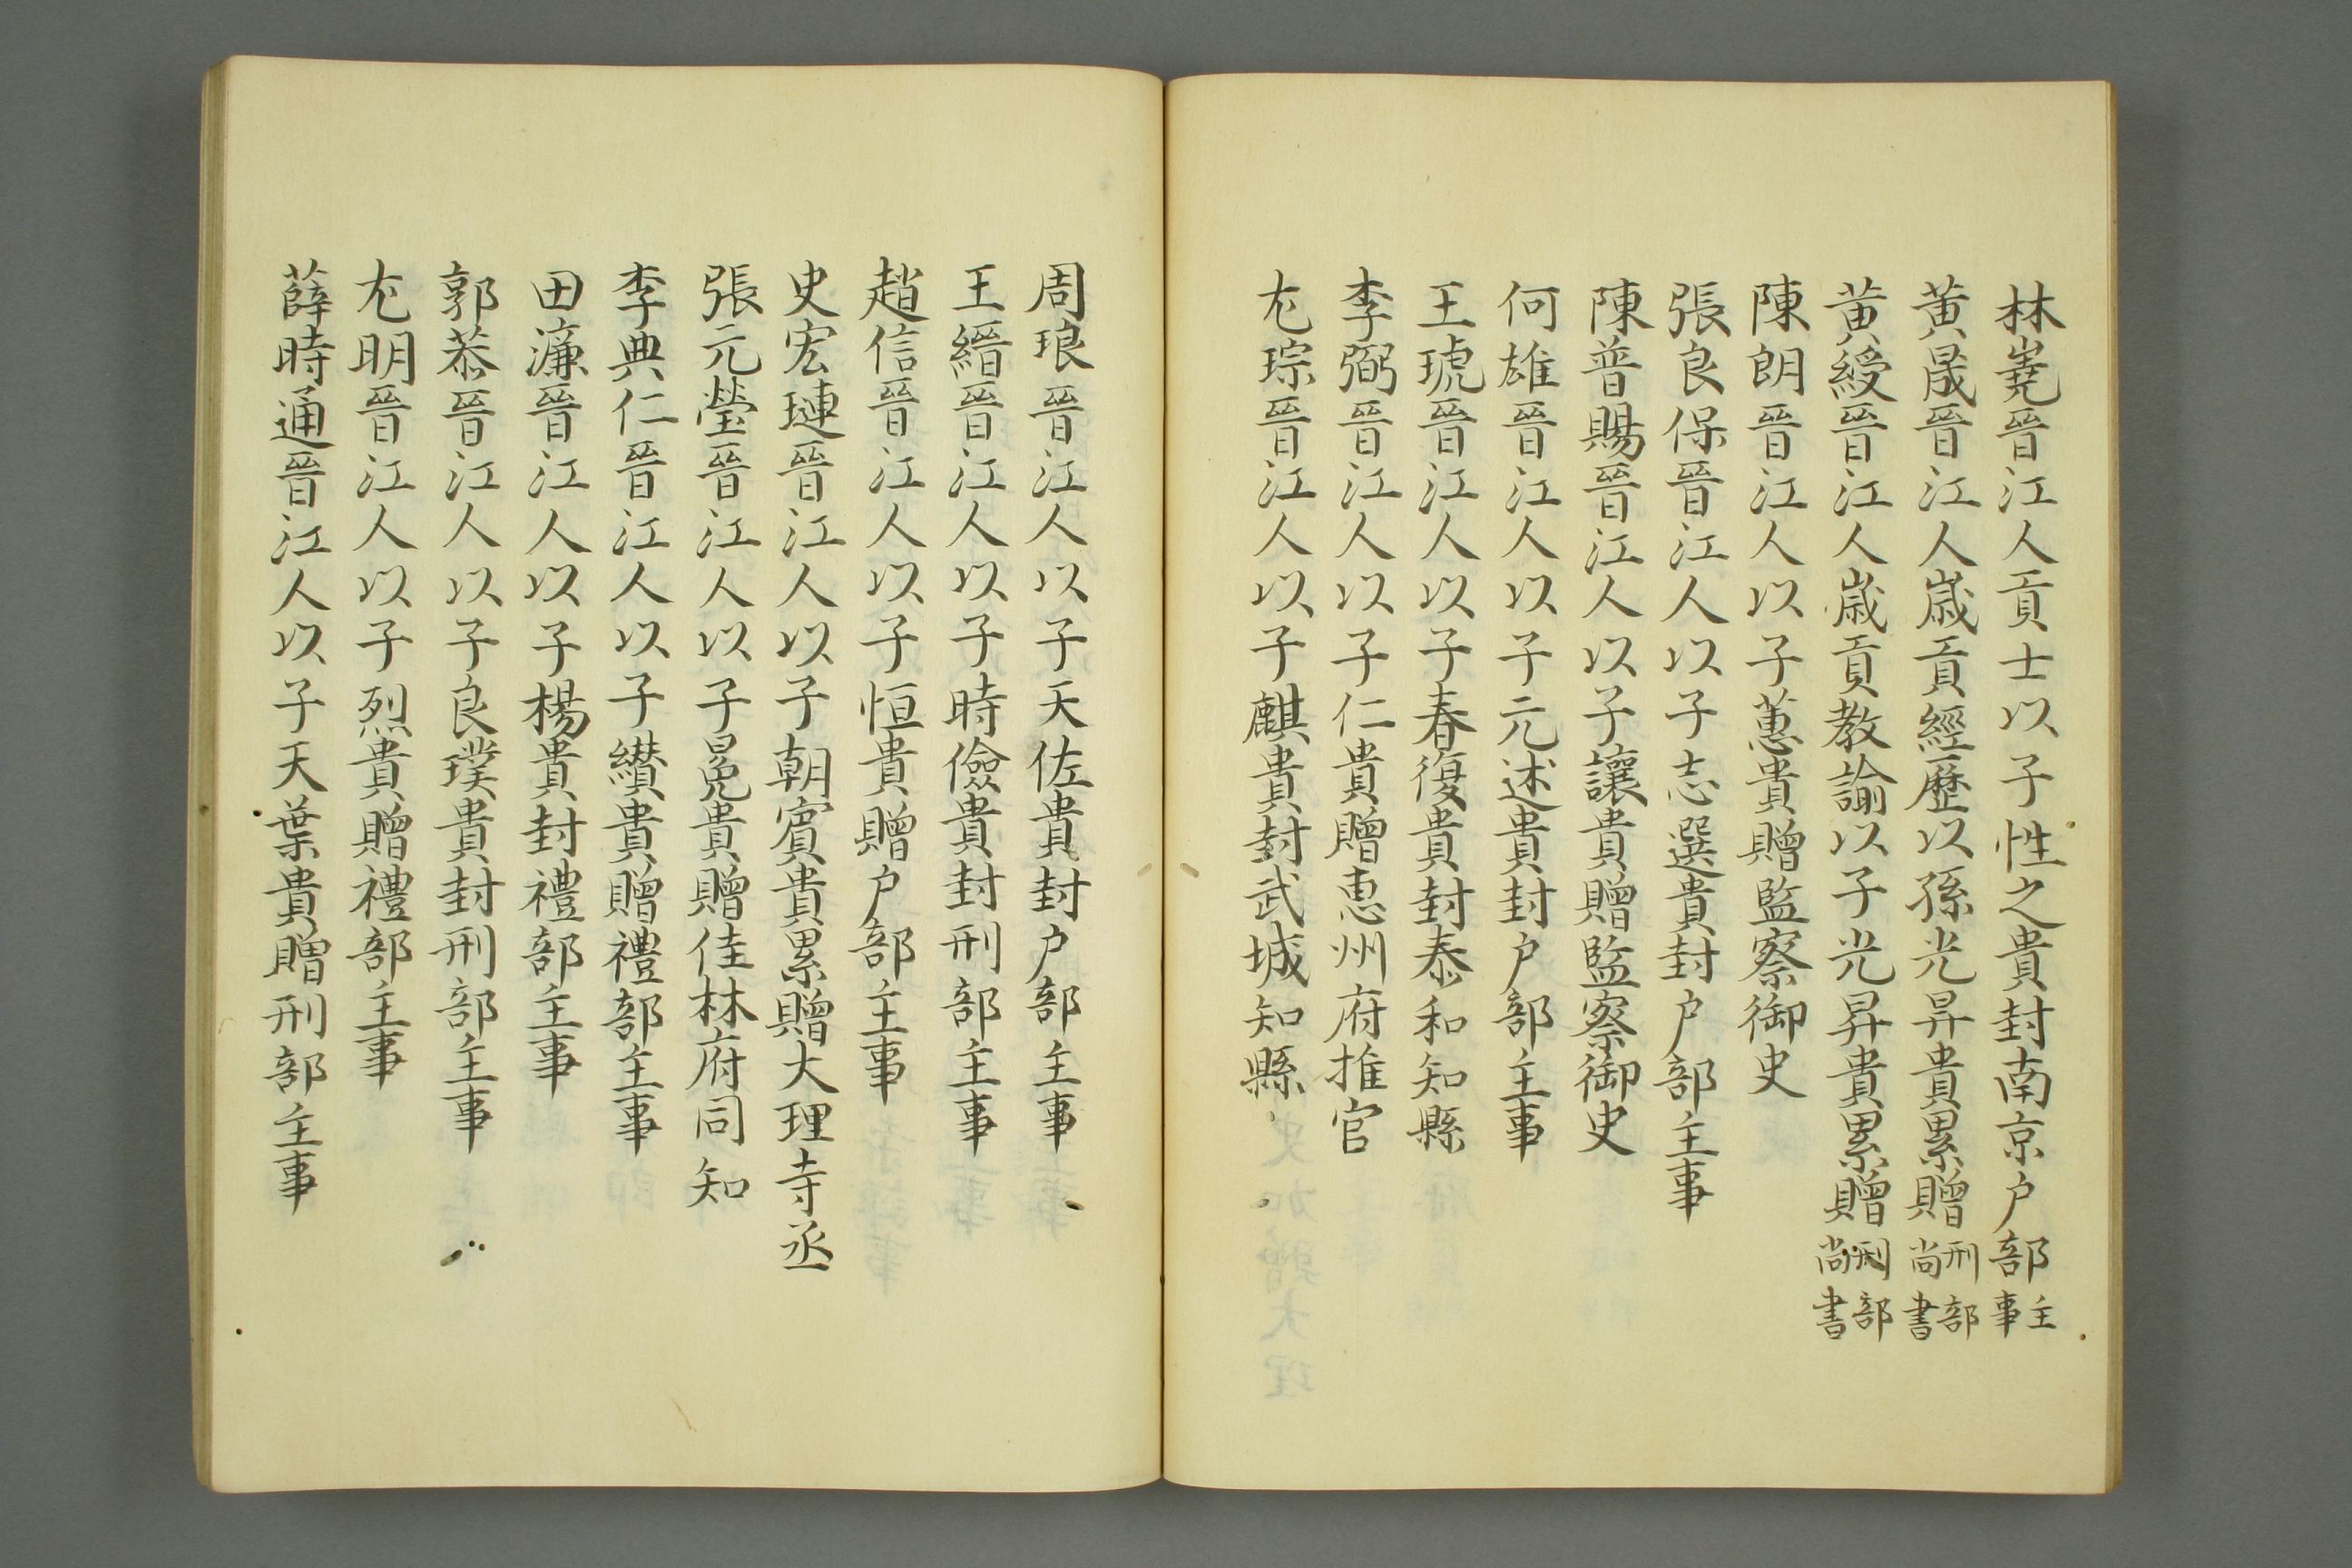 林嵬晉江人貢士以子性之貴封南京户部主事
黃晟晉江人嵗貢經歷以孫光昇貴累贈刑部尚書
黃綬晉江人嵗貢教諭以子光昇貴累贈刑部尚書
陳朗晉江人以子蕙貴贈監察御史
張良保晉江人以子志選貴封户部主事
陳普賜晉江人以子讓貴贈監察御史
何雄晉江人以子元述貴封户部主事
王琥晉江人以子春復貴封泰和知縣
李弼晉江人以子仁貴贈惠州府推官
尤琮晉江人以子麒貴封武城知縣
周琅晉江人以子天佐貴封户部主事
王縉晉江人以子時儉貴封刑部主事
趙信晉江人以子恒貴贈户部主事
史宏璉晉江人以子朝賔貴累贈大理寺丞
張元瑩晉江人以子冕貴贈佳林府同知
李典仁晉江人以子纉貴贈禮部主事
田濂晉江人以子楊貴封禮部主事
郭恭晉江人以子良璞貴封刑部主事
尤明晉江人以子烈貴贈禮部主事
薛時通晉江人以子天葉貴贈刑部主事